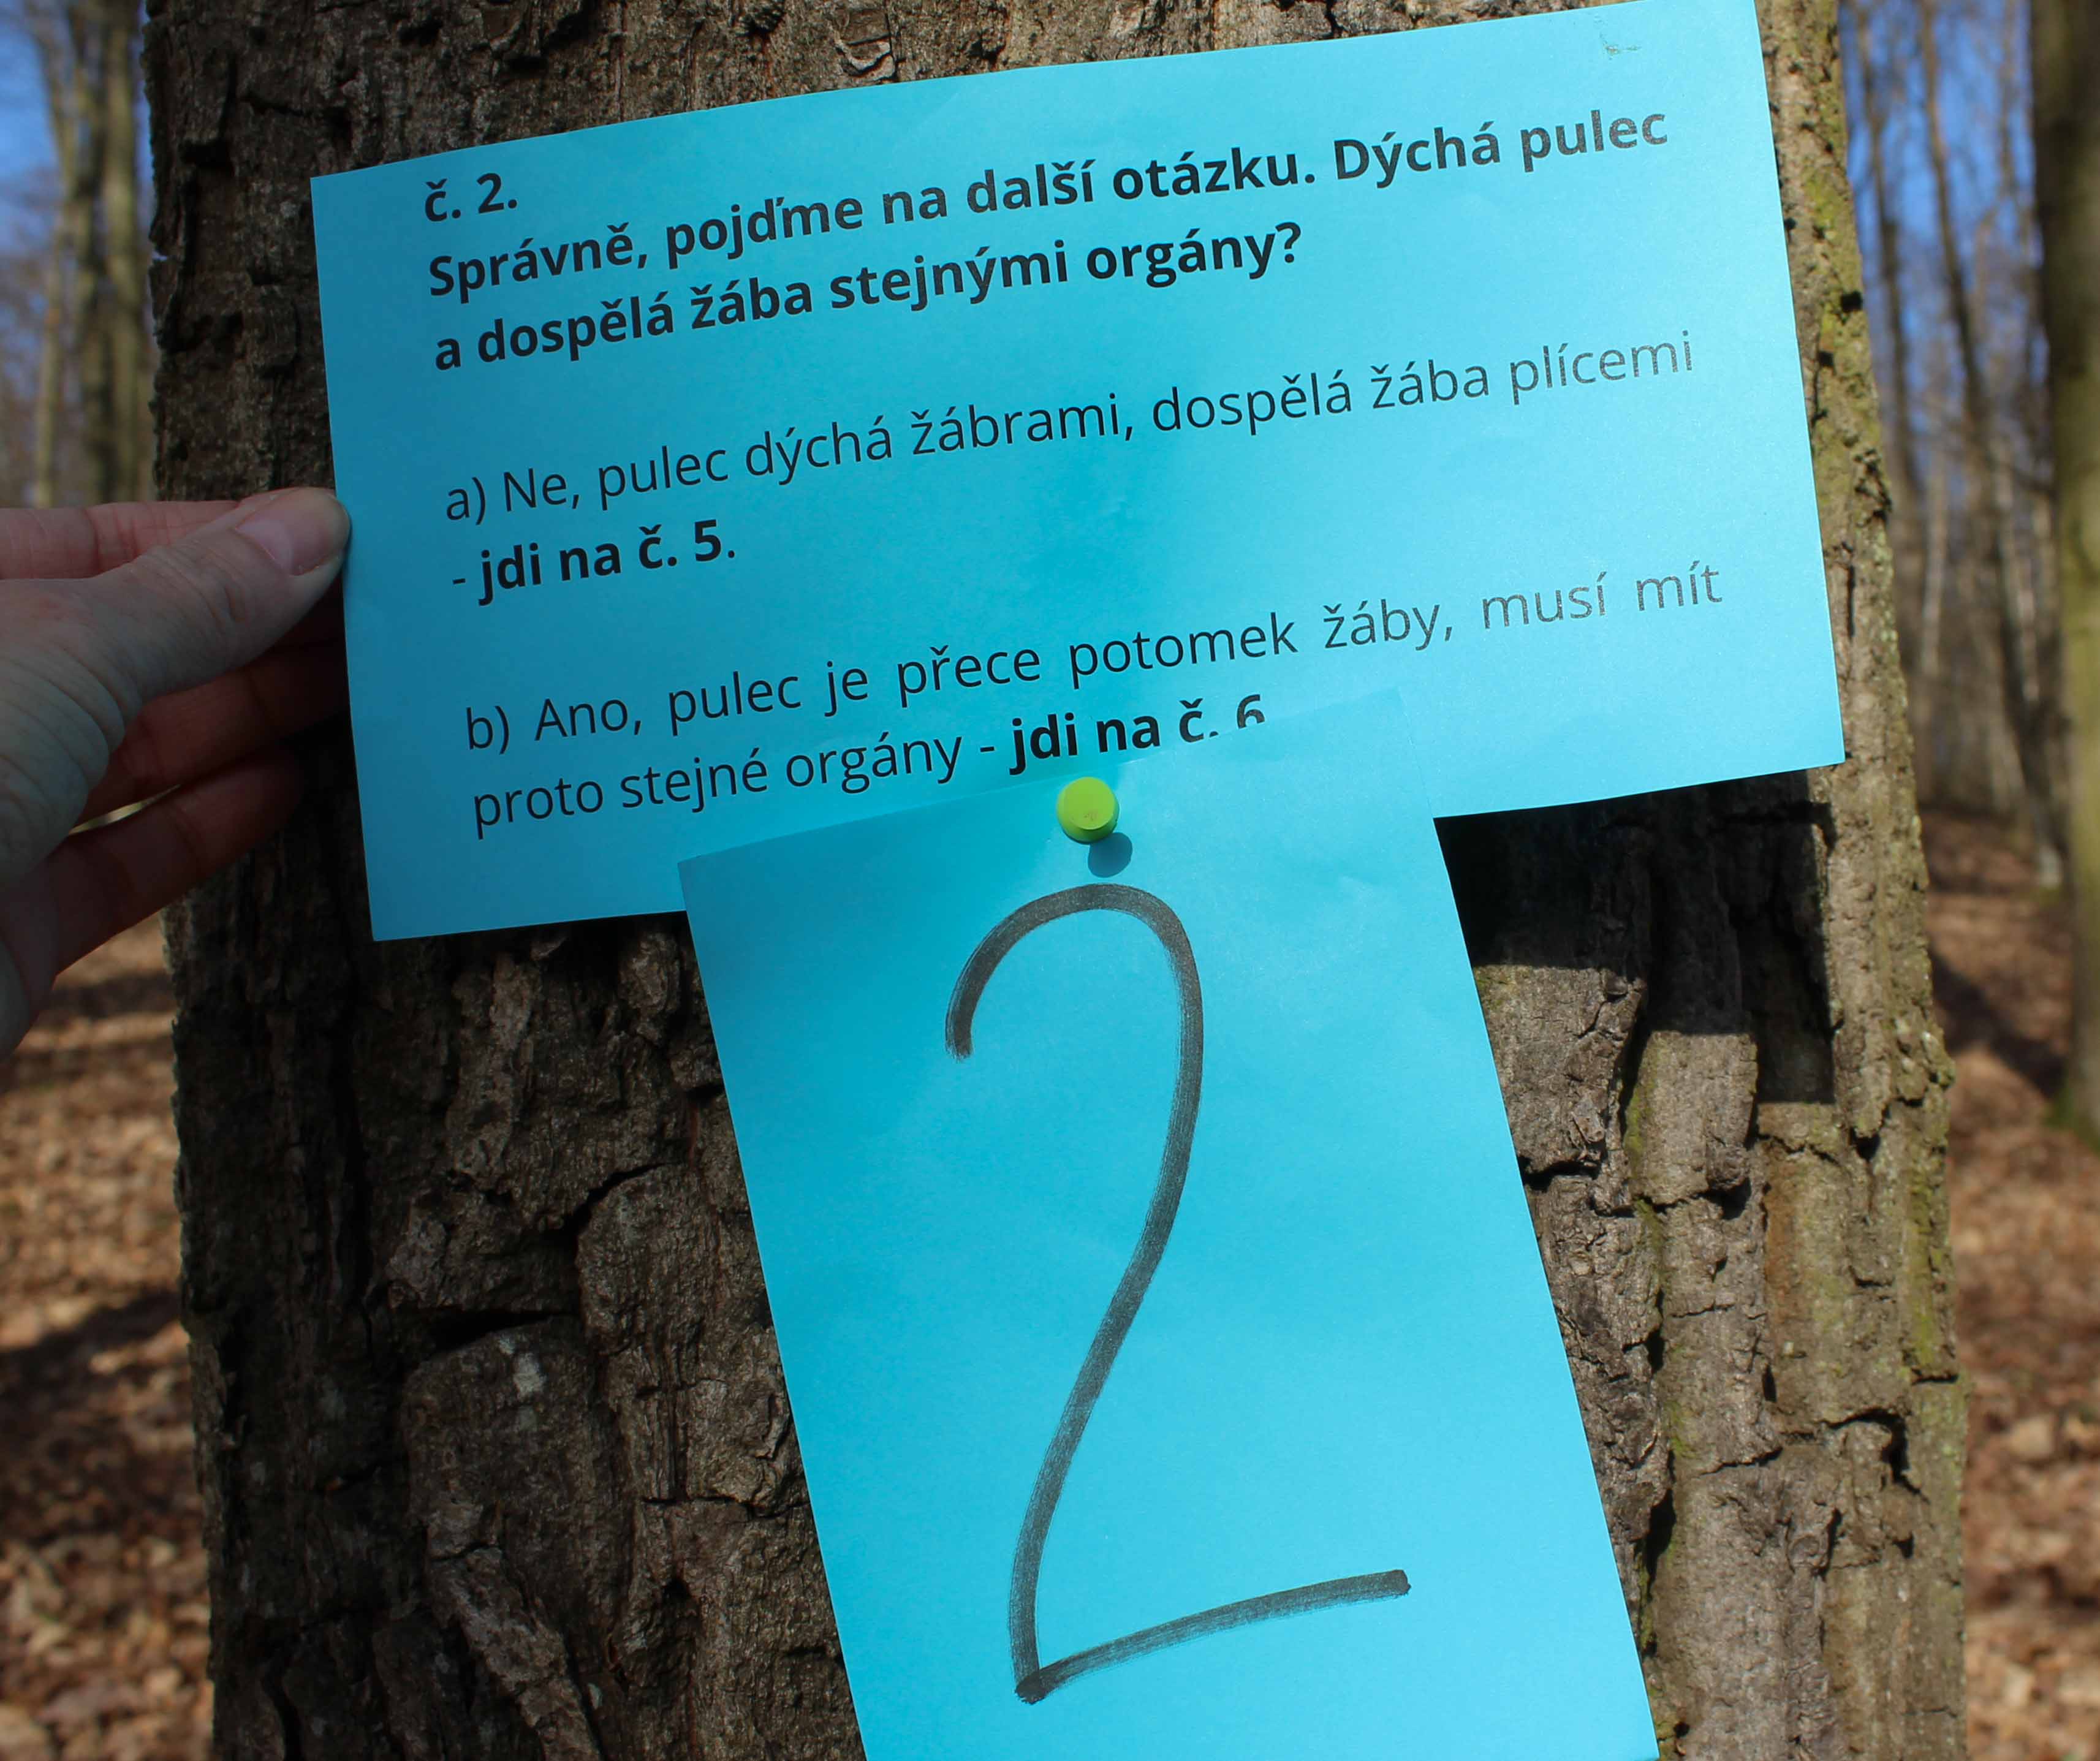 č. 2.
Správně, pojďme na další otázku. Dýchá pulec
a dospělá žába stejnými orgány?
a) Ne, pulec dýchá žábrami, dospělá žába plícemi
- jdi na č. 5.
b) Ano, pulec je přece potomek žáby, musí mít
proto stejné orgány - jdi na č. 6
2